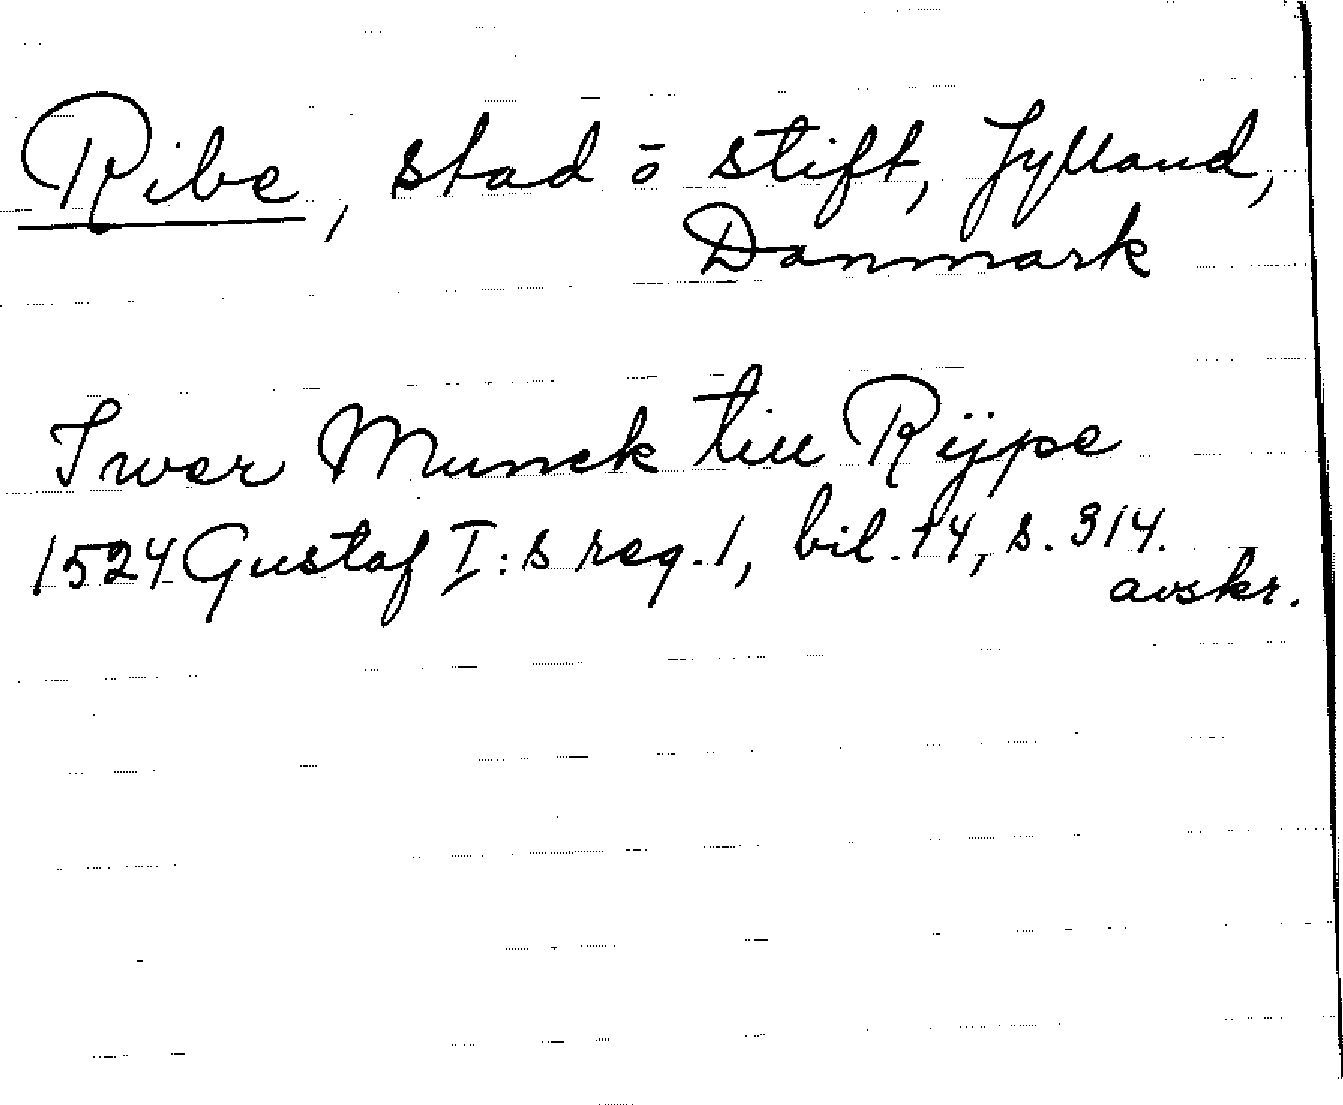 Ribe, stad ō stift, Jylland,
Danmark
Iwer Munck till Rÿpe
1524 Gustaf I:s reg. 1, bil. 14, s. 314.
avskr.